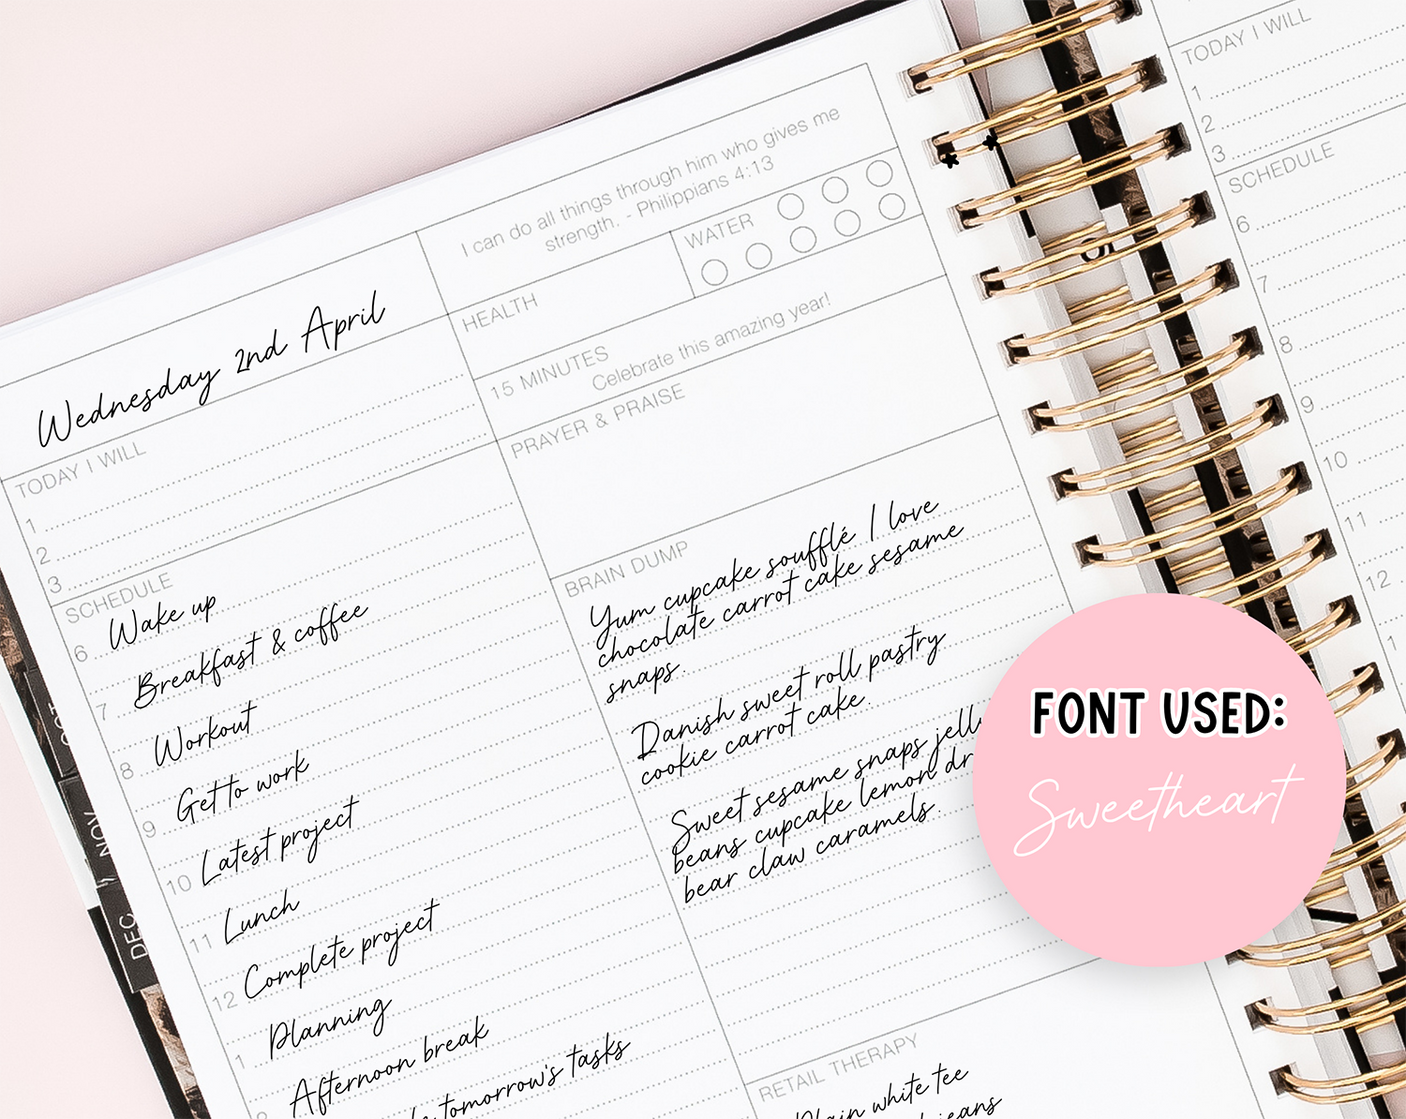 Wednesday 2nd April
TODAY I WILL
1
2
3
SCHEDULE
6 Wake up
7 Breakfast & coffee
8 Workout
9 Get to work
10 Latest project
11 Lunch
12 Complete project
1 Planning
Afternoon break
tomorrow's tasks
I can do all things through him who gives me
strength. - Philippians 4:13
HEALTH
WATER
15 MINUTES
Celebrate this amazing year!
PRAYER & PRAISE
BRAIN DUMP
Yum cupcake soufflé I love
chocolate carrot cake sesame
snaps.
Danish sweet roll pastry
cookie carrot cake.
Sweet sesame snaps
beans cupcake lemon
bear claw caramels
RETAIL THERAPY
Plain white tee
jeans
TODAY I WILL
1
2
3
SCHEDULE
6
7
8
9
10
11
12
1
NOV
DEC
FONT USED:
Sweetheart